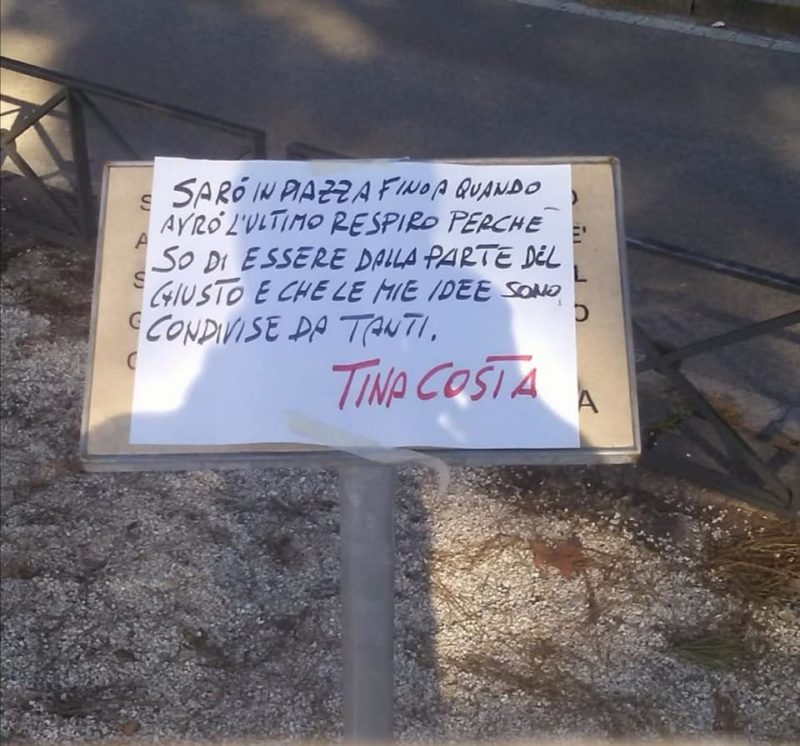 SARÓ IN PIAZZA FINO A QUANDO
AVRÓ L'ULTIMO RESPIRO PERCHE
SO DI ESSERE DALLA PARTE DEL
GIUSTO E CHE LE MIE IDEE SONO
CONDIVISE DA TANTI.
TINA COSTA